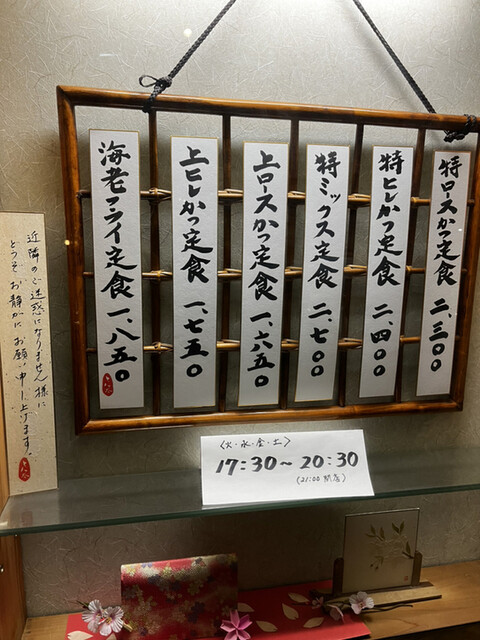 特ロースかつ定食 二、三〇〇
特ヒレかつ定食 二、四〇〇
特ミックス定食 二、七〇〇
上ロースかつ定食 一、六五〇
上ヒレかつ定食 一、七五〇
海老フライ定食 一、八五〇
近隣のご迷惑になりません様に
どうぞお静かにお願い申し上げます。
〈火・水・金・土〉
17:30〜20:30
(21:00 閉店)